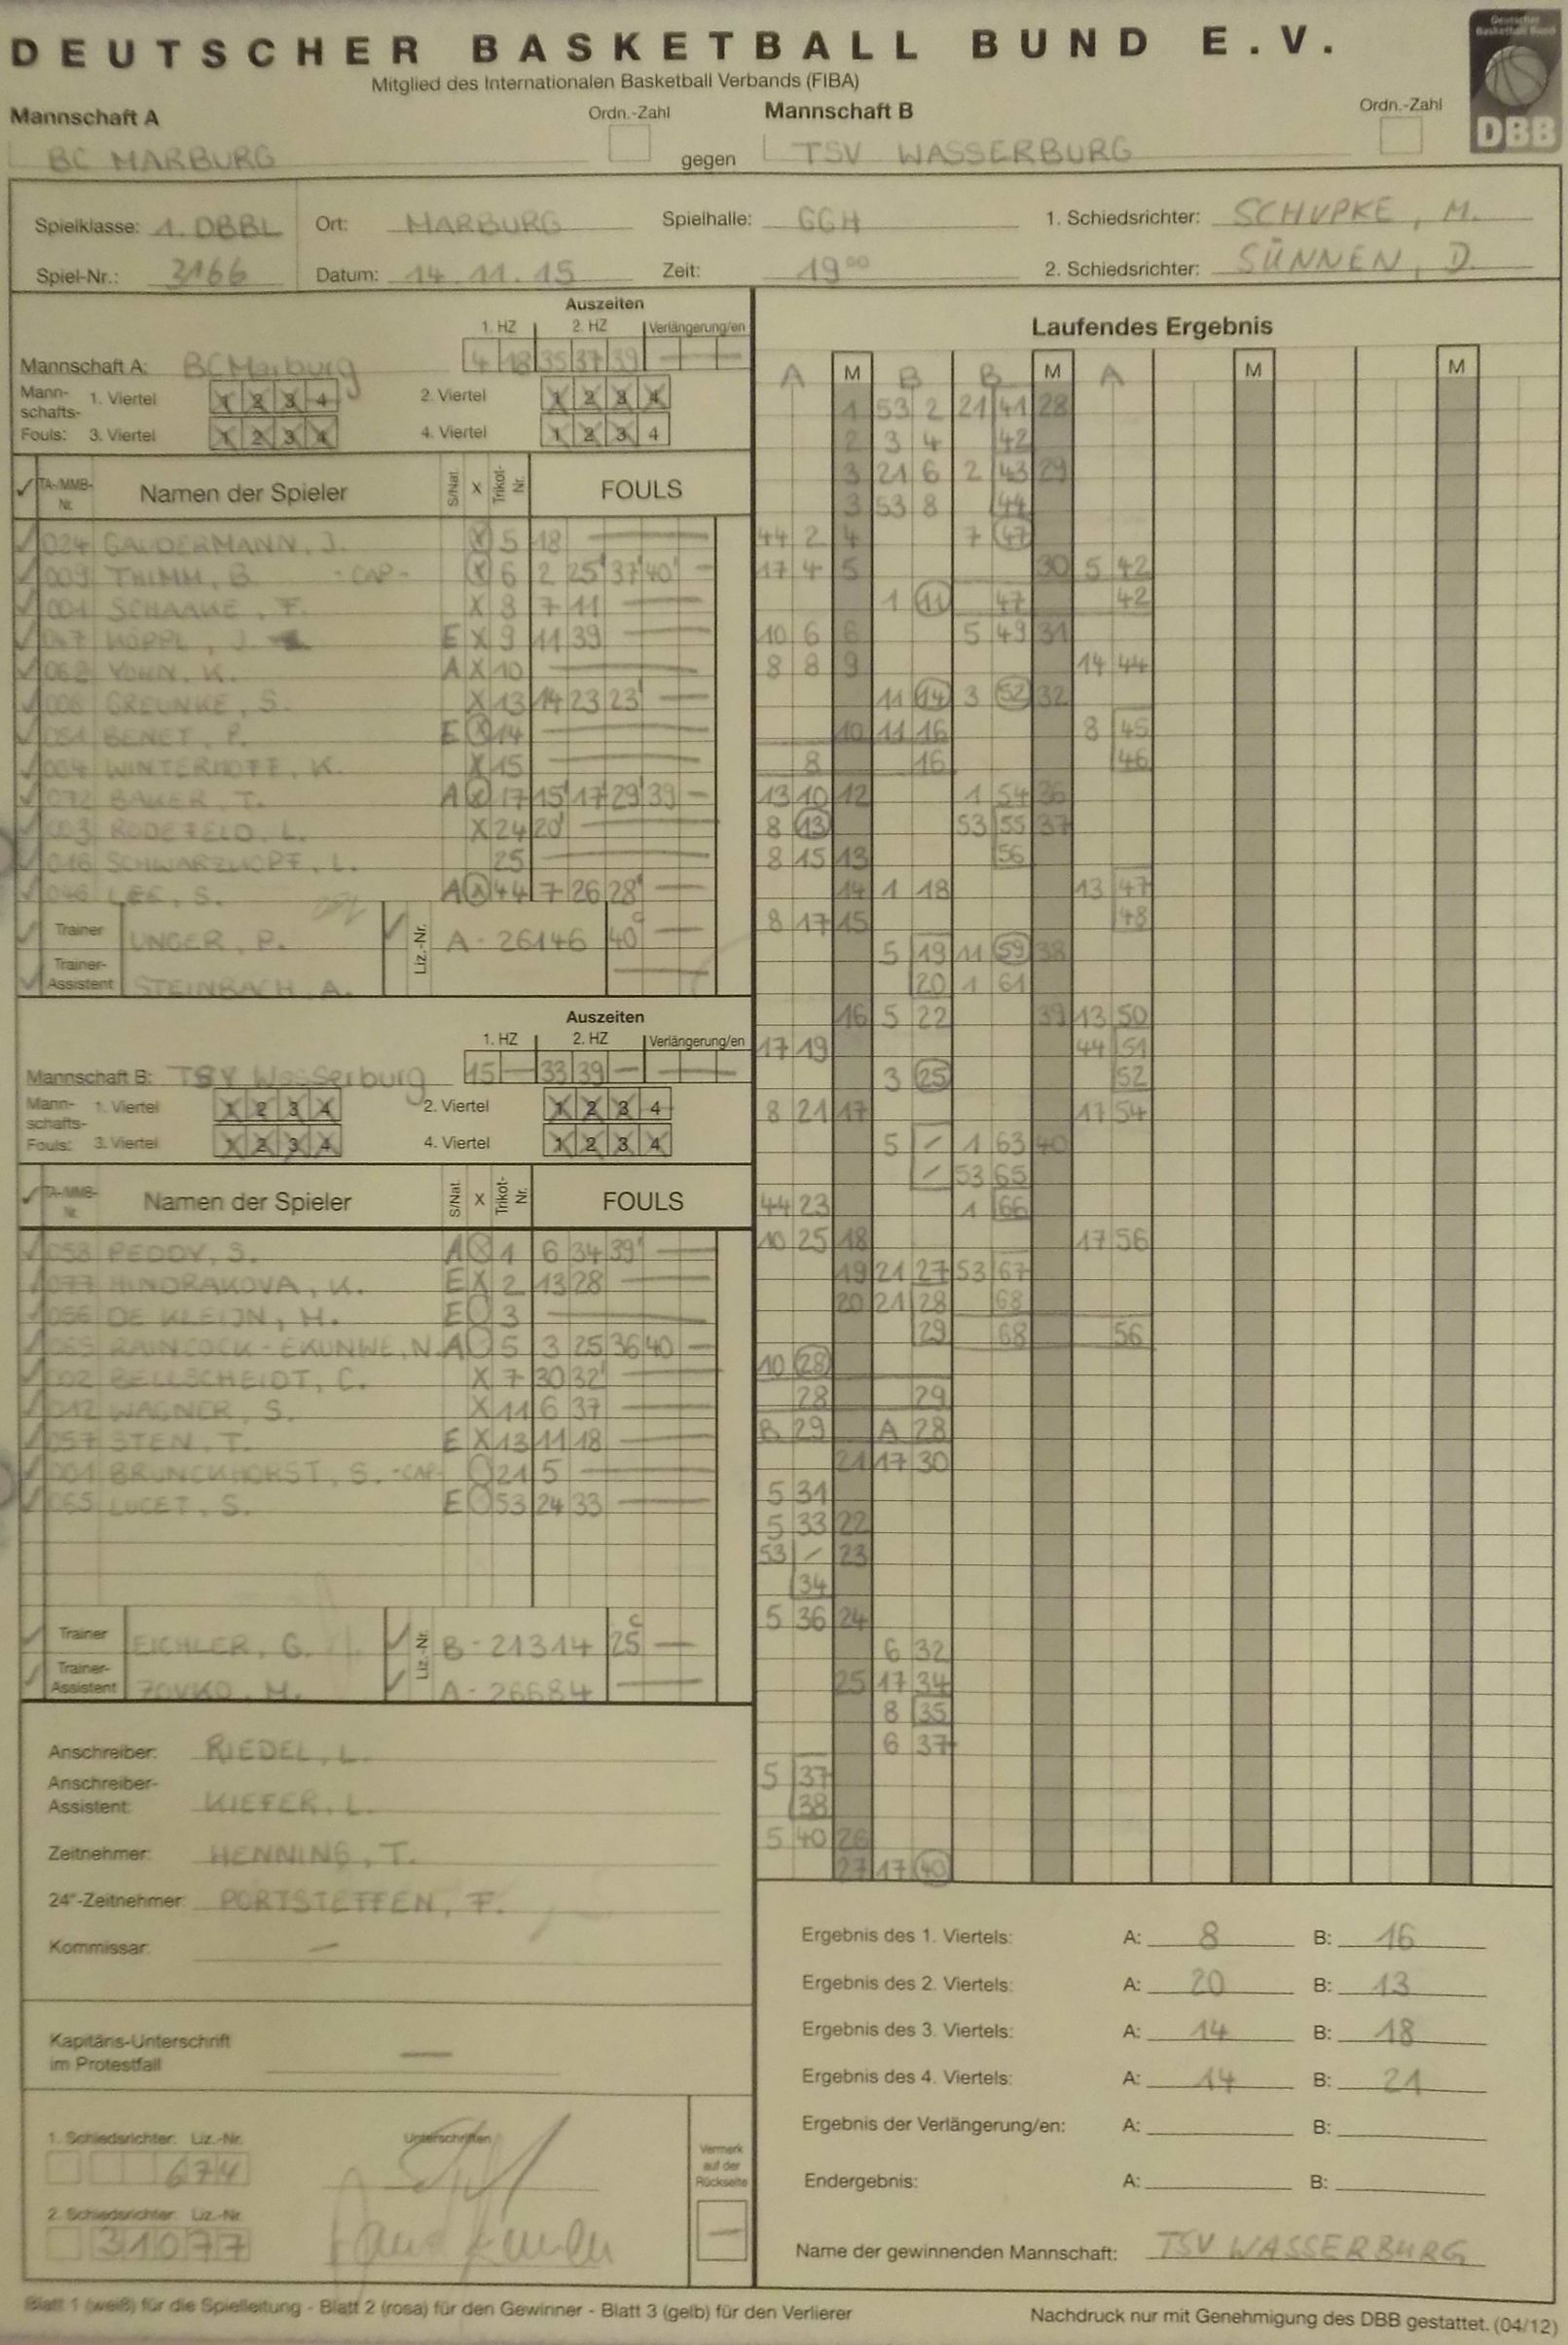 DEUTSCHER BASKETBALL BUND E.V.
Mitglied des Internationalen Basketball Verbands (FIBA)
Deutscher Basketball Bund
DBB
Mannschaft A Ordn.-Zahl Mannschaft B Ordn.-Zahl
BC MARBURG gegen TSV WASSERBURG
Spielklasse: 1. DBBL Ort: MARBURG Spielhalle: GGH 1. Schiedsrichter: SCHUPKE, M.
Spiel-Nr.: 3166 Datum: 14.11.15 Zeit: 19 00 2. Schiedsrichter: SÜNNEN, D.
Auszeiten
1. HZ 2. HZ Verlängerung/en
Mannschaft A: BC Marburg 4 18 35 37 39
Mannschafts-Fouls: 1. Viertel 1 2 3 4 2. Viertel 1 2 3 4
3. Viertel 1 2 3 4 4. Viertel 1 2 3 4
TA-/MMB-Nr. Namen der Spieler S/Nat. X Trikot-Nr. FOULS
024 GAUDERMANN, J. X 5 18
009 THIMM, B. -CAP- X 6 2 25 37 40
001 SCHAAKE, F. X 8 7 11
047 KÖPPL, J. E X 9 11 39
062 YOHN, K. A X 10
006 GREUNKE, S. X 13 14 23 23
081 BENET, P. E X 14
004 WINTERHOFF, K. X 15
072 BAKER, T. A X 17 15 17 29 39
003 RODEFELD, L. X 24 20
016 SCHWARZKOPF, L. 25
046 LEE, S. A X 44 7 26 28
Trainer UNGER, P. Liz.-Nr. A-26146 40 C
Trainer-Assistent STEINBACH, A.
Auszeiten
1. HZ 2. HZ Verlängerung/en
Mannschaft B: TSV Wasserburg 15 — 33 39 —
Mannschafts-Fouls: 1. Viertel 1 2 3 4 2. Viertel 1 2 3 4
3. Viertel 1 2 3 4 4. Viertel 1 2 3 4
TA-/MMB-Nr. Namen der Spieler S/Nat. X Trikot-Nr. FOULS
058 PEDDY, S. A X 1 6 34 39
077 HINDRAKOVA, K. E X 2 13 28
056 DE KLEIJN, M. E 3
RAINCOCK-EKUNWE, N. A 5 3 25 36 40
002 BELLSCHEIDT, C. X 7 30 32
012 WAGNER, S. X 11 6 37
057 STEN, T. E X 13 11 18
001 BRUNCKHORST, S. -CAP- 21 5
065 LUCET, S. E 53 24 33
Trainer EICHLER, G. Liz.-Nr. B-21314 25 C
Trainer-Assistent ZOVKO, M. A-26684
Anschreiber: RIEDEL, L.
Anschreiber-Assistent: KIEFER, L.
Zeitnehmer: HENNING, T.
24"-Zeitnehmer: PORTSTEFFEN, F.
Kommissar: —
Kapitäns-Unterschrift im Protestfall —
1. Schiedsrichter: Liz.-Nr. 674 Unterschriften
2. Schiedsrichter: Liz.-Nr. 31077
Vermerk auf der Rückseite —
Laufendes Ergebnis
A M B B M A M M
1 53 2 21 41 28
2 3 4 42
3 21 6 2 43 29
3 53 8 44
44 2 4 7 47
17 4 5 30 5 42
1 11 47 42
10 6 6 5 49 31
8 8 9 14 44
11 14 3 52 32
10 11 16 8 45
8 16 46
13 10 12 1 54 36
8 13 53 55 37
8 15 13 56
14 1 18 13 47
8 17 15 48
5 19 11 59 38
20 1 61
16 5 22 39 13 50
17 19 44 51
3 25 52
8 21 17 17 54
5 / 1 63 40
/ 53 65
44 23 1 66
10 25 18 17 56
19 21 27 53 67
20 21 28 68
29 68 56
10 28
28 29
B 29 A 28
21 17 30
5 31
5 33 22
53 / 23
34
5 36 24
6 32
25 17 34
8 35
6 37
5 37
38
5 40 26
27 17 40
Ergebnis des 1. Viertels: A: 8 B: 16
Ergebnis des 2. Viertels: A: 20 B: 13
Ergebnis des 3. Viertels: A: 14 B: 18
Ergebnis des 4. Viertels: A: 14 B: 21
Ergebnis der Verlängerung/en: A: B:
Endergebnis: A: B:
Name der gewinnenden Mannschaft: TSV WASSERBURG
Blatt 1 (weiß) für die Spielleitung - Blatt 2 (rosa) für den Gewinner - Blatt 3 (gelb) für den Verlierer
Nachdruck nur mit Genehmigung des DBB gestattet. (04/12)